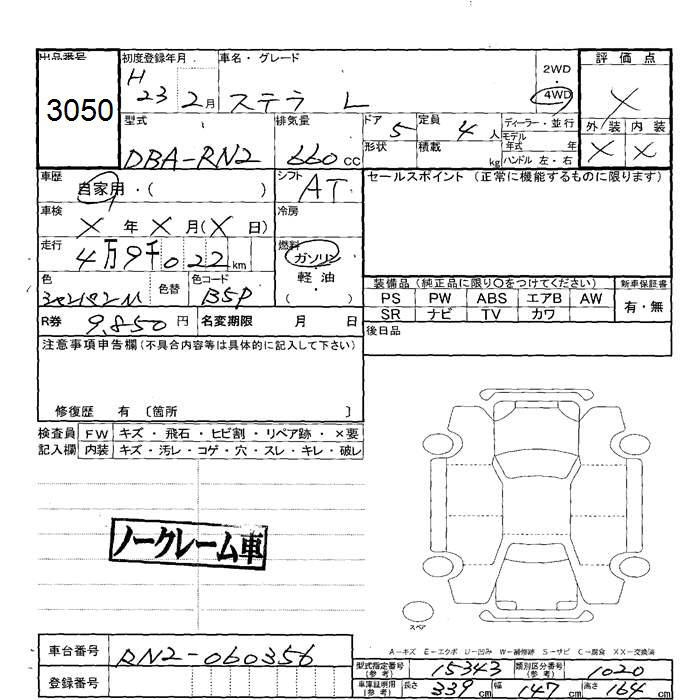 出品番号
3050
初度登録年月
H 23年 2月
車名・グレード
ステラ L
2WD
4WD
評価点
X
外装 内装
X X
型式
DBA-RN2
排気量
660 cc
ドア
5
定員
4 人
ディーラー・並行
モデル
年式 年
形状
積載
kg
ハンドル 左・右
車歴
自家用・( )
シフト
AT
セールスポイント (正常に機能するものに限ります)
車検
X 年 X 月(X 日)
冷房
走行
4万9千022 km
燃料
ガソリン
軽・油
( )
色
色替
色コード
B5P
装備品 (純正品に限り○をつけてください)
新車保証書
PS PW ABS エアB AW
SR ナビ TV カワ
有・無
R券
9,850 円
名変期限 月 日
後日品
注意事項申告欄 (不具合内容等は具体的に記入して下さい)
修復歴 有 〔箇所 〕
検査員 FW キズ・飛石・ヒビ割・リペア跡・×要
記入欄 内装 キズ・汚レ・コゲ・穴・スレ・キレ・破レ
ノークレーム車
スペア
A−キズ E−エクボ U−凹み W−補修跡 S−サビ C−腐食 XX−交換済
車台番号
RN2-060356
登録番号
型式指定番号
(参考)
15343
類別区分番号
(参考)
1020
車庫証明用
(参考)
長さ 339 cm
幅 147 cm
高さ 164 cm